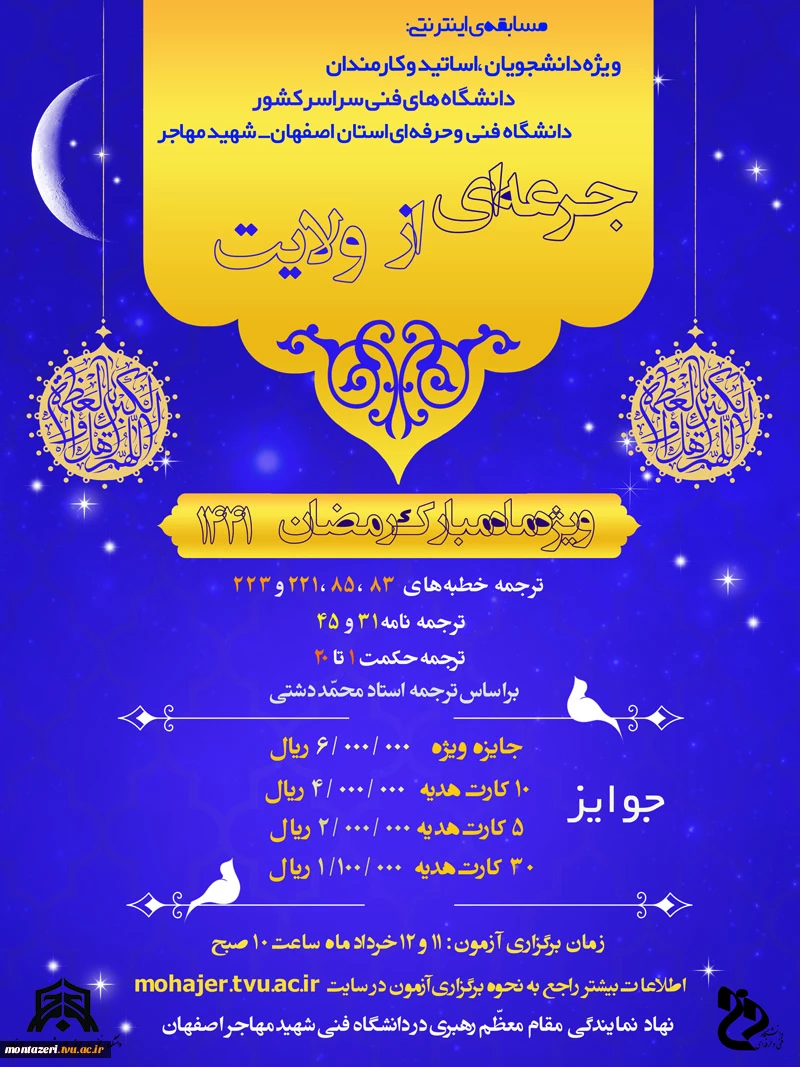 مسابقه‌ی اینترنتی:
ویژه دانشجویان ،اساتید و کارمندان
دانشگاه های فنی سراسر کشور
دانشگاه فنی و حرفه ای استان اصفهان_ شهید مهاجر
جرعه‌ای از ولایت
ویژه ماه مبارک رمضان ۱۴۴۱
ترجمه خطبه های ۸۳ ،۸۵ ،۲۲۱ و ۲۲۳
ترجمه نامه ۳۱ و ۴۵
ترجمه حکمت ۱ تا ۲۰
براساس ترجمه استاد محمّد دشتی
جوایز
جایزه ویژه ۶/۰۰۰/۰۰۰ ریال
۱۰ کارت هدیه ۴/۰۰۰/۰۰۰ ریال
۵ کارت هدیه ۲/۰۰۰/۰۰۰ ریال
۳۰ کارت هدیه ۱/۱۰۰/۰۰۰ ریال
زمان برگزاری آزمون : ۱۱ و ۱۲ خرداد ماه ساعت ۱۰ صبح
اطلاعات بیشتر راجع به نحوه برگزاری آزمون در سایت mohajer.tvu.ac.ir
نهاد نمایندگی مقام معظّم رهبری در دانشگاه فنی شهید مهاجر اصفهان
montazeri.tvu.ac.ir